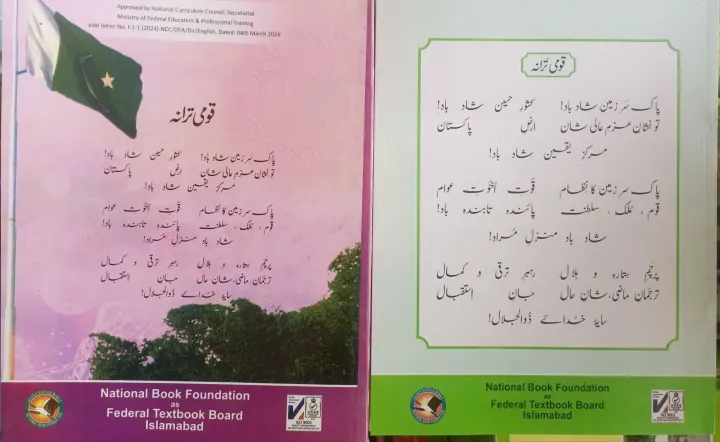 Approved by National Curriculum Council, Secretariat
Ministry of Federal Education & Professional Training
vide letter No: F.1-1 (2024)-NCC/DEA/Dir/English, Dated: 04th March 2024
قومی ترانہ
پاک سرزمین شاد باد! کشورِ حسین شاد باد!
تو نشانِ عزمِ عالی شان ارضِ پاکستان
مرکزِ یقین شاد باد!
پاک سرزمین کا نظام قُوّتِ اُخُوّتِ عوام
قوم، ملک، سلطنت پائندہ تابندہ باد!
شاد باد منزلِ مُراد!
پرچمِ ستارہ و ہلال رہبرِ ترقی و کمال
ترجمانِ ماضی، شانِ حال جانِ استقبال
سایۂ خدائے ذوالجلال!
National Book Foundation
as
Federal Textbook Board
Islamabad
قومی ترانہ
پاک سَرزمین شاد باد! کشورِ حسین شاد باد!
تو نشانِ عزمِ عالی شان ارضِ پاکستان
مرکزِ یقین شاد باد!
پاک سرزمین کا نظام قُوّتِ اُخُوّتِ عوام
قوم، مُلک، سلطنت پائندہ تابندہ باد!
شاد باد منزلِ مُراد!
پرچمِ ستارہ و ہلال رہبرِ ترقی و کمال
ترجمانِ ماضی، شانِ حال جانِ استقبال
سایۂ خدائے ذوالجلال!
National Book Foundation
as
Federal Textbook Board
Islamabad